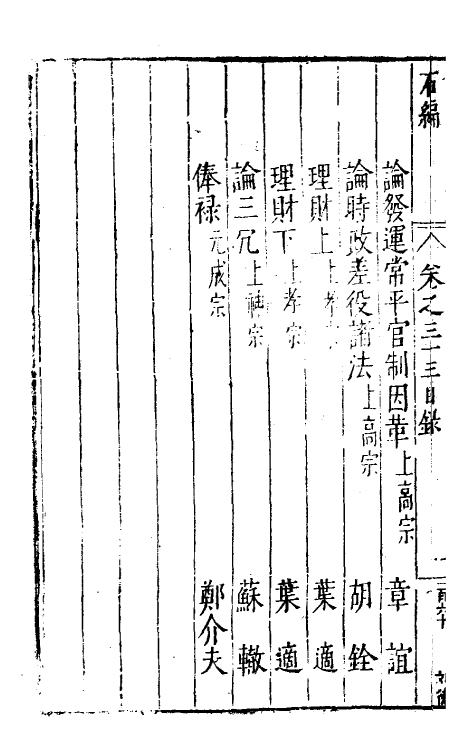 右編
卷之三十三目錄
論發運常平官制因革上高宗 章誼
論時政差役諸法上高宗 胡銓
理財上上孝宗 葉適
理財下上孝宗 葉適
論三冗上神宗 蘇轍
俸祿元成宗 鄭介夫